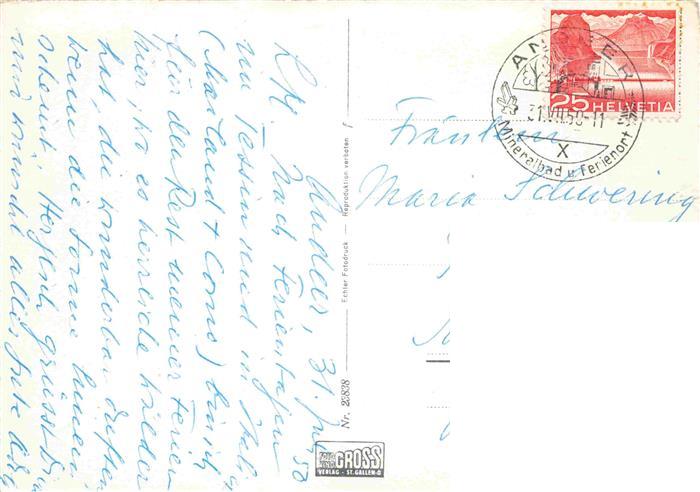 Andeer, 31. Juli 50
L. M.
Nach Ferientagen
im Tessin und in Italien
(Mailand + Como) bin ich
für den Rest meiner Ferien
hier, wo es herrliche Wälder
hat, die wunderbar duften
wenn die Sonne
scheint. Herzlich grüsst Dich
und wünscht alles Gute
Nr. 23838
Echter Fotodruck — Reproduktion verboten
GROSS
VERLAG - ST. GALLEN
ANDEER
31.VII.50-11
X
Mineralbad u Ferienort
25 HELVETIA
Fräulein
Maria Schwering